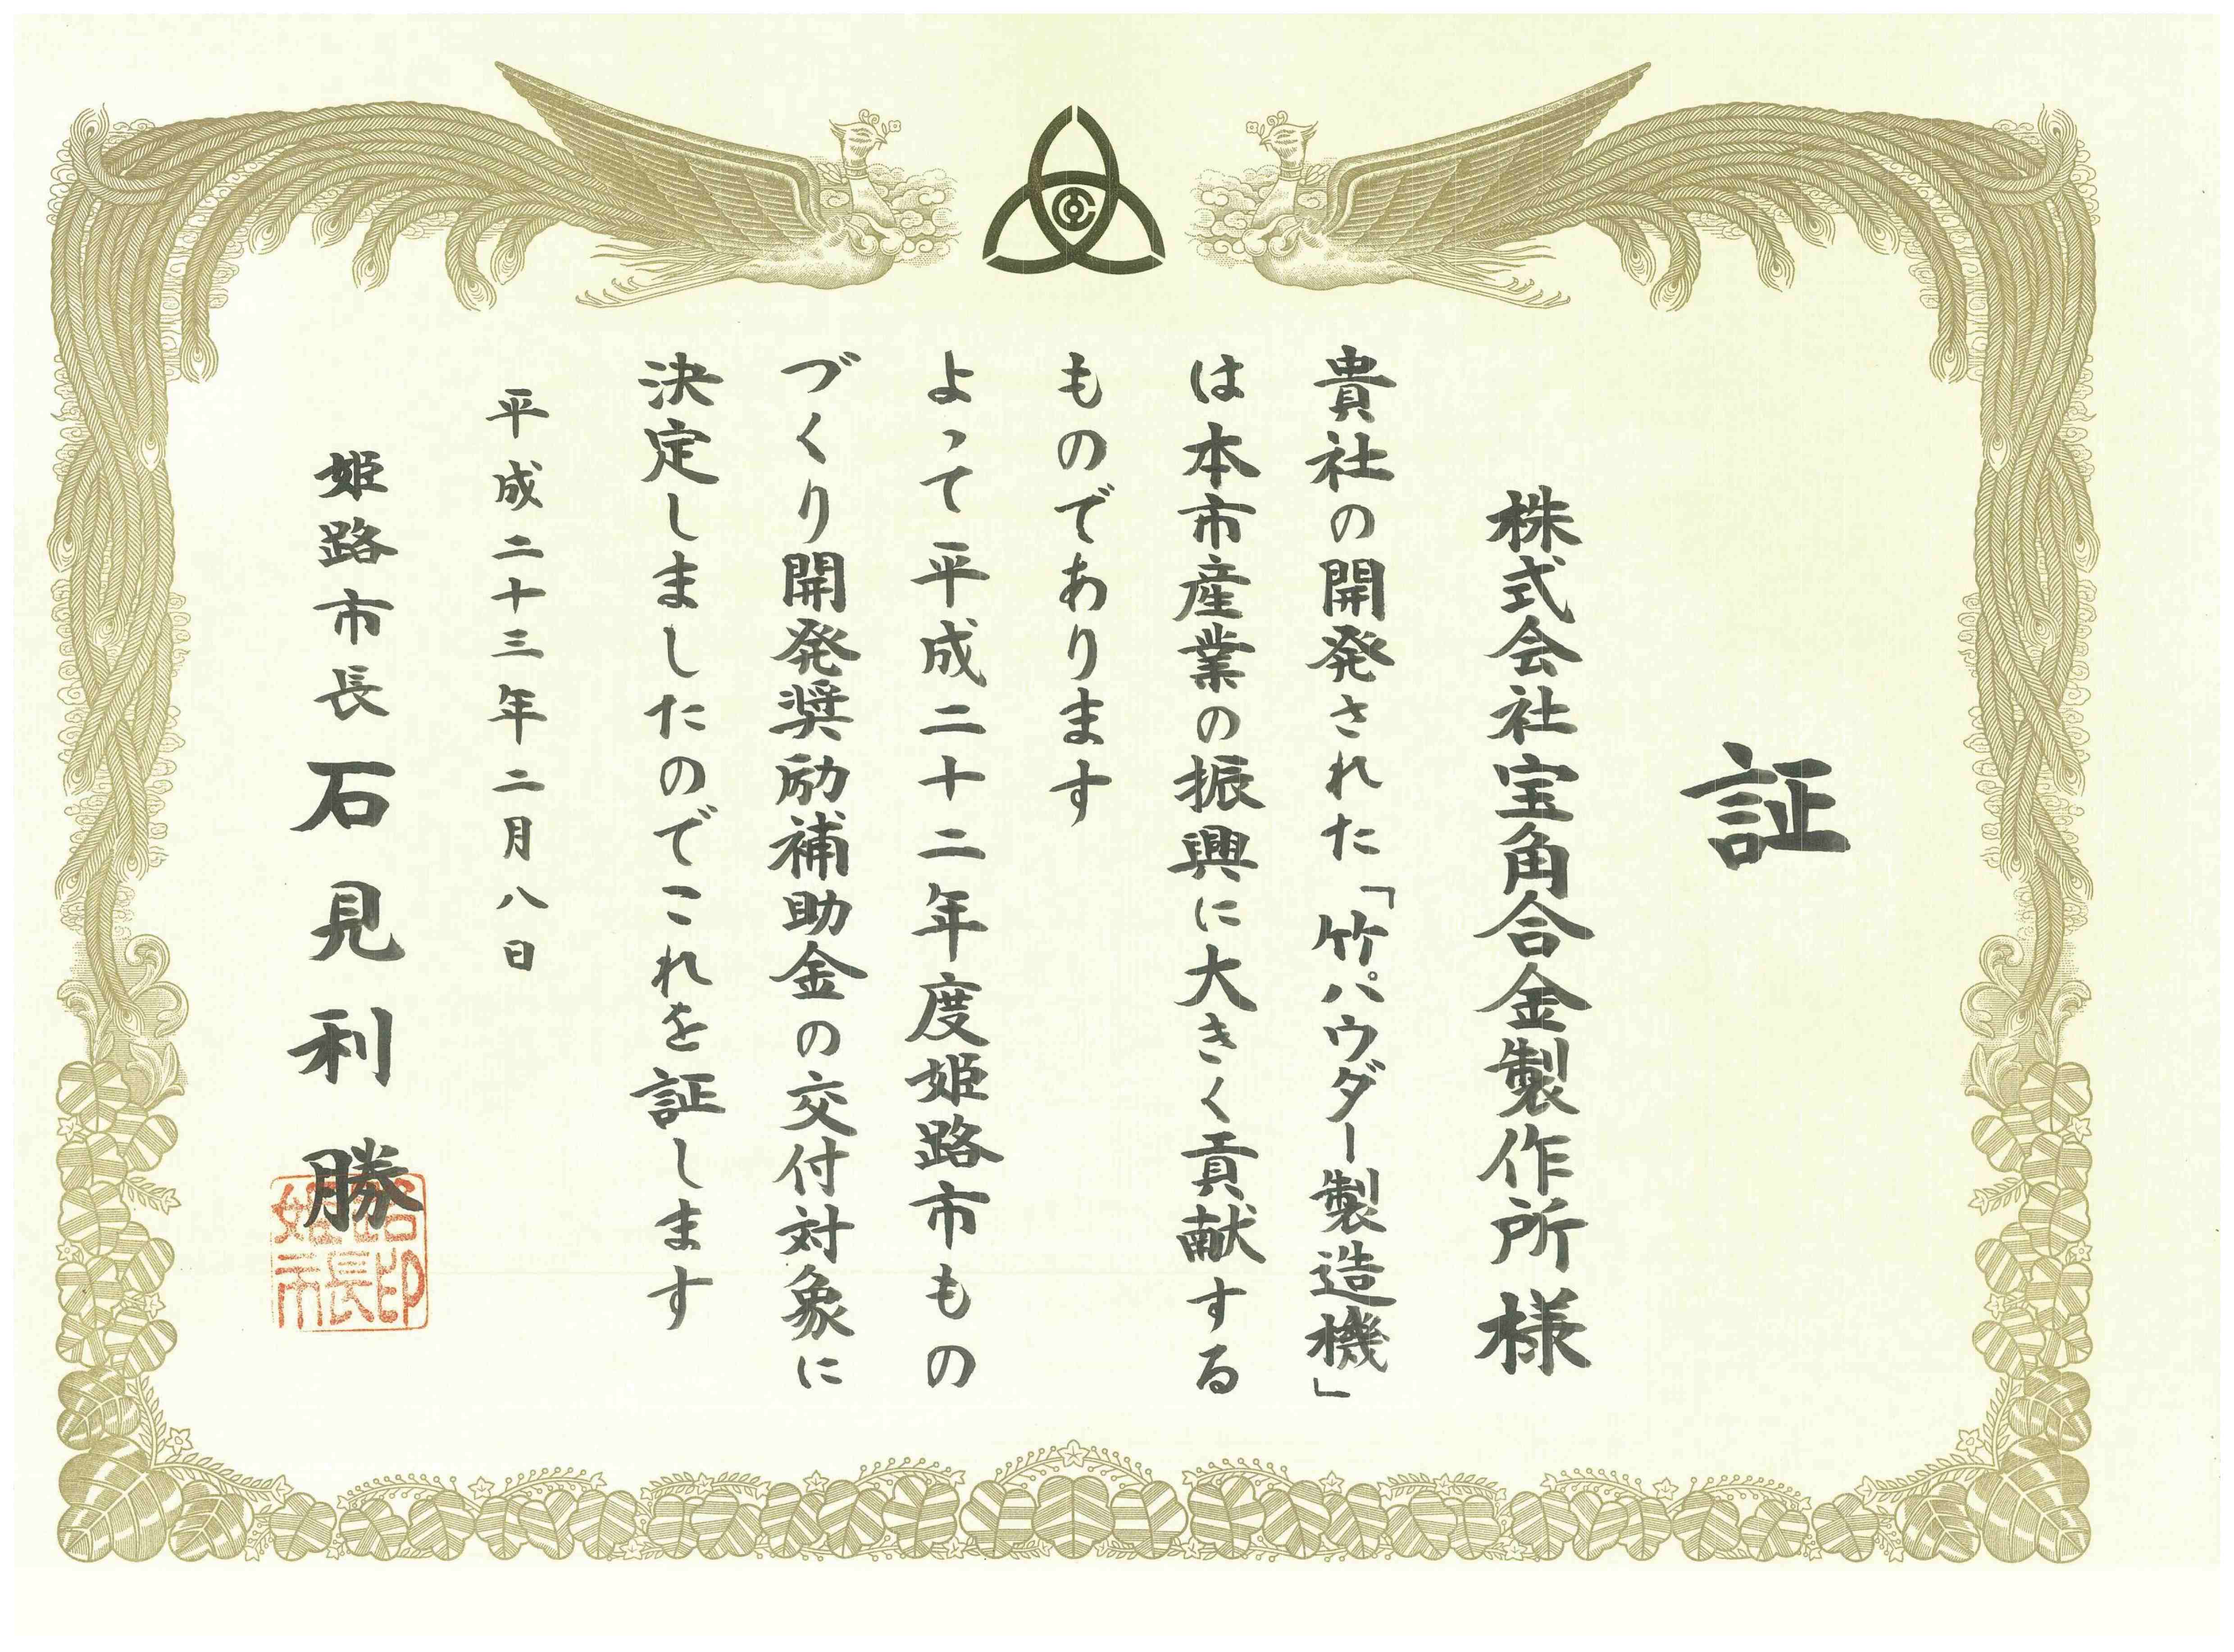 証
株式会社宝角合金製作所様
貴社の開発された「竹パウダー製造機」
は本市産業の振興に大きく貢献する
ものであります
よって平成二十二年度姫路市もの
づくり開発奨励補助金の交付対象に
決定しましたのでこれを証します
平成二十三年二月八日
姫路市長石見利勝
姫路
市長印